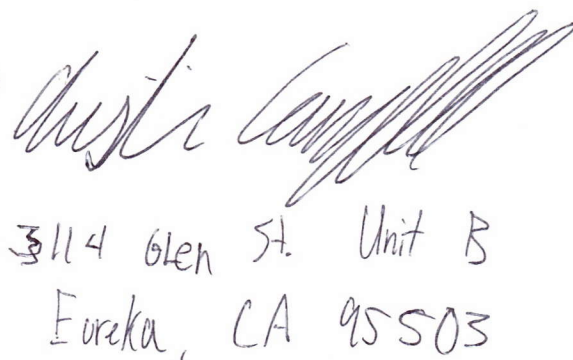 Austin Campbell
3114 Glen St. Unit B
Eureka, CA 95503